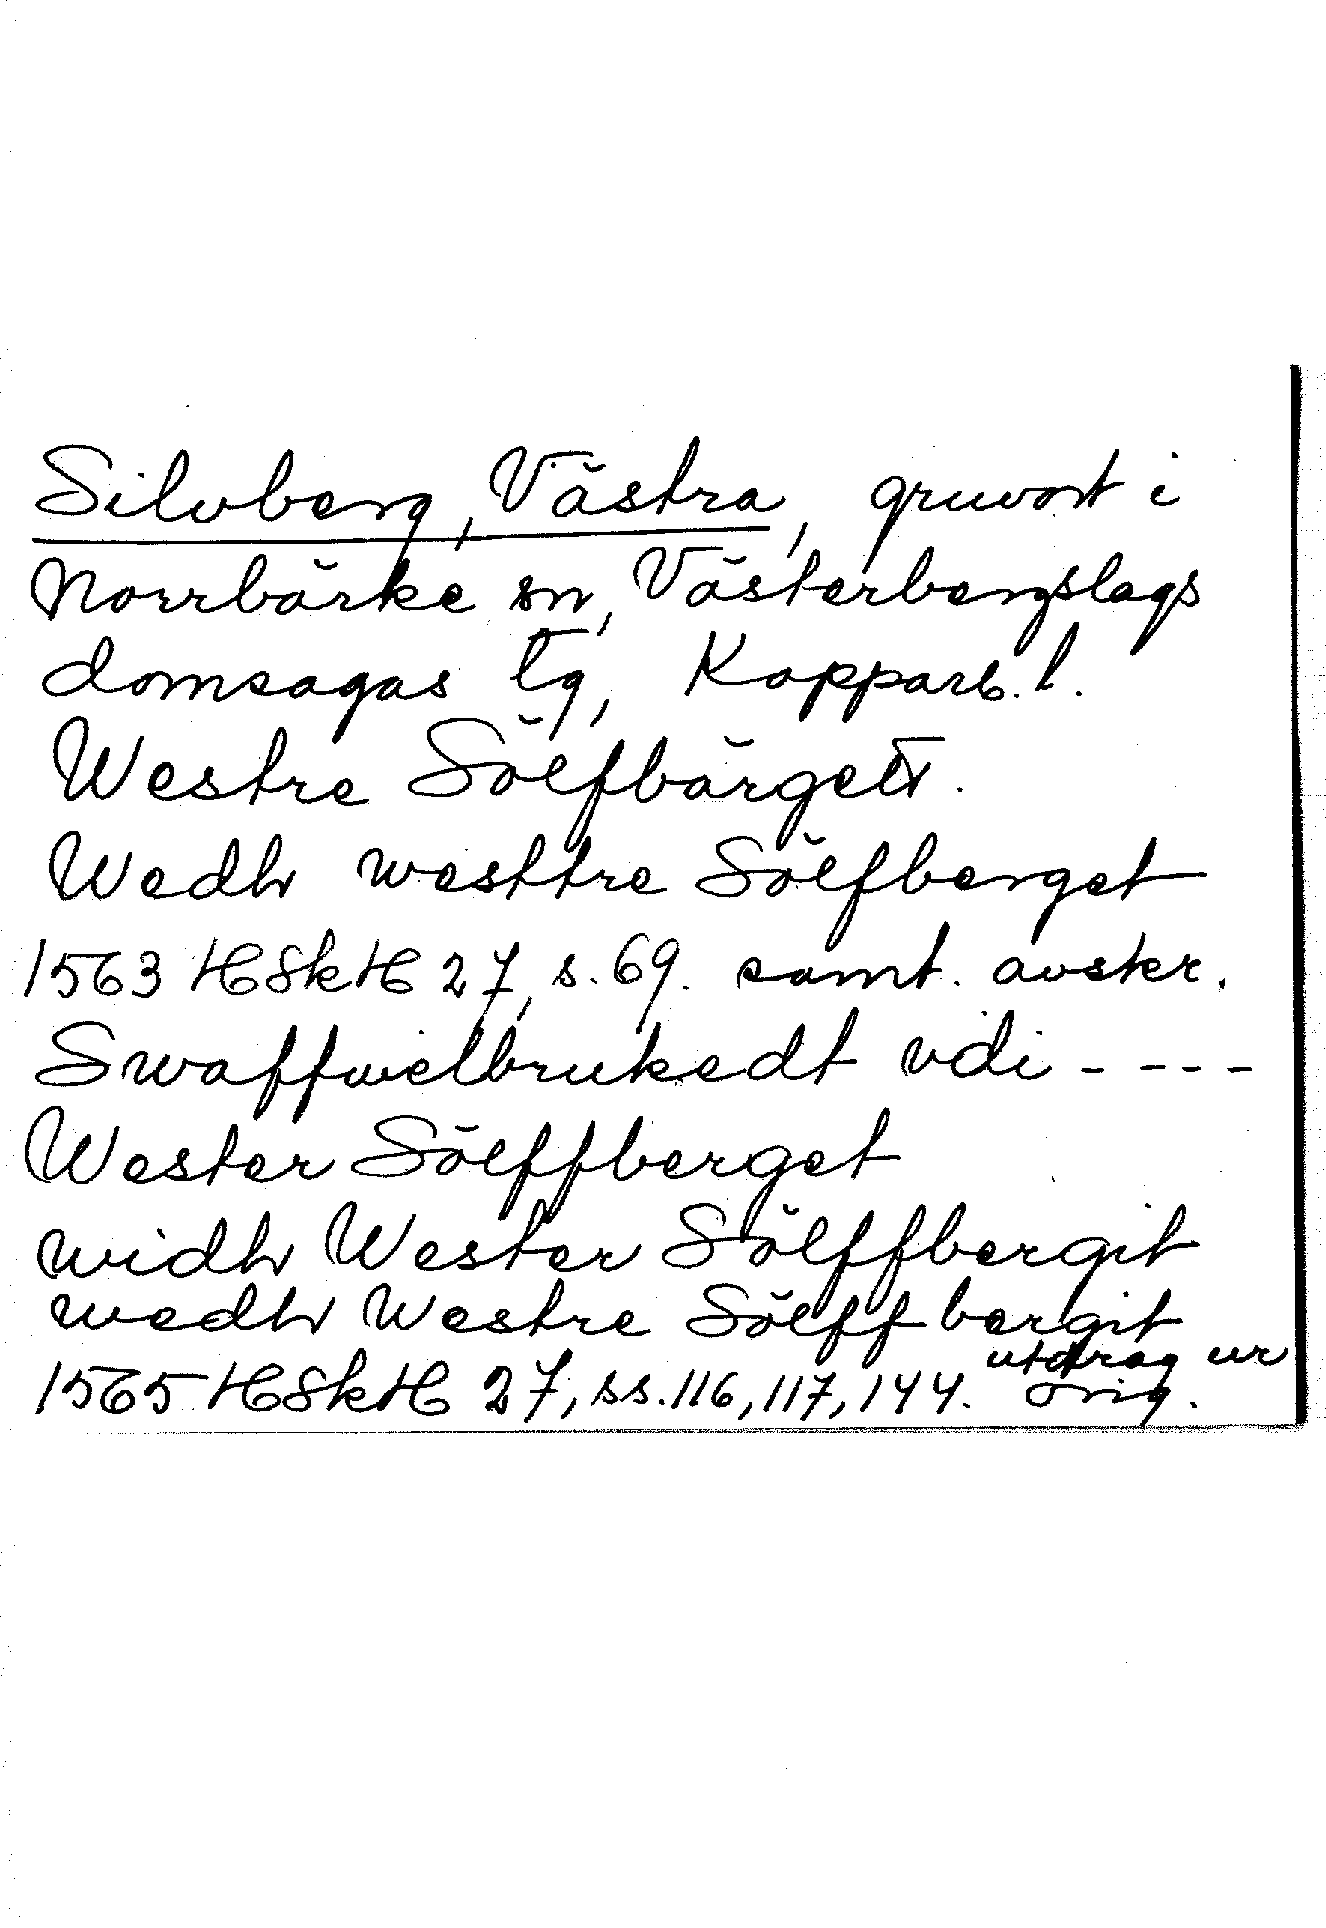 Silvberg, Västra, gruvort i
Norrbärke sn, Västerbergslags
domsagas tg, Kopparb. l.
Westre Sölfbärgett.
Wedh westtre Sölfberget
1563 HSkH 27, s. 69. samt. avskr.
Swaffwelbrukedt vdi - - - -
Wester Sölffberget
widh Wester Sölffbergit
wedh Westre Sölffbergit
1565 HSkH 27, ss. 116, 117, 144. utdrag ur orig.